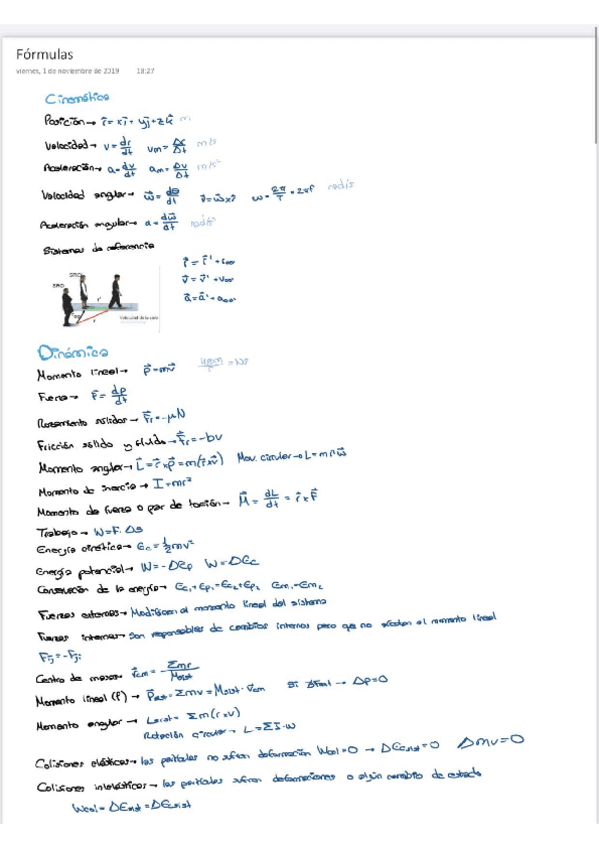 Fórmulas
viernes, 1 de noviembre de 2019 18:27
Cinemática
Posición → r⃗ = xi⃗ + yj⃗ + zk⃗ m
Velocidad → v = dr/dt vm = Δr/Δt m/s
Aceleración → a = dv/dt am = Δv/Δt m/s²
Velocidad angular → w⃗ = dθ/dt v⃗ = w⃗xr⃗ w = 2π/T = 2πf rad/s
Aceleración angular → α = dw⃗/dt rad/s²
Sistemas de referencia
r⃗ = r⃗' + roo'
v⃗ = v⃗' + voo'
a⃗ = a⃗' + aoo'
Dinámica
Momento lineal → p⃗ = mv⃗
Fuerza → F⃗ = dp/dt
Rozamiento sólidos → F⃗r = -μN
Fricción sólido y fluido → F⃗r = -bv
Momento angular → L⃗ = r⃗xp⃗ = m(r⃗xv⃗) Mov. circular → L = mr²w⃗
Momento de inercia → I = mr²
Momento de fuerza o par de torsión → M⃗ = dL/dt = r⃗xF⃗
Trabajo → W = F · Δs
Energía cinética → Ec = ½mv²
Energía potencial → W = -ΔEp W = ΔEc
Conservación de la energía → Ec₁+Ep₁ = Ec₂+Ep₂ Em₁ = Em₂
Fuerzas externas → Modifican el momento lineal del sistema
Fuerzas internas → Son responsables de cambios internos pero que no afectan al momento lineal
Fij = -Fji
Centro de masas → r⃗cm = Σmr/Msist
Momento lineal (P) → P⃗sist = Σmv = Msist · v⃗cm Si → Δp = 0
Momento angular → Lsist = Σm(rxv)
Rotación circular → L = ΣI·w
Colisiones elásticas → las partículas no sufren deformación Wcol = 0 → ΔEcsist = 0 Δmv = 0
Colisiones inelásticas → las partículas sufren deformaciones o algún cambio de estado
Wcol = ΔEmst = ΔEcsist